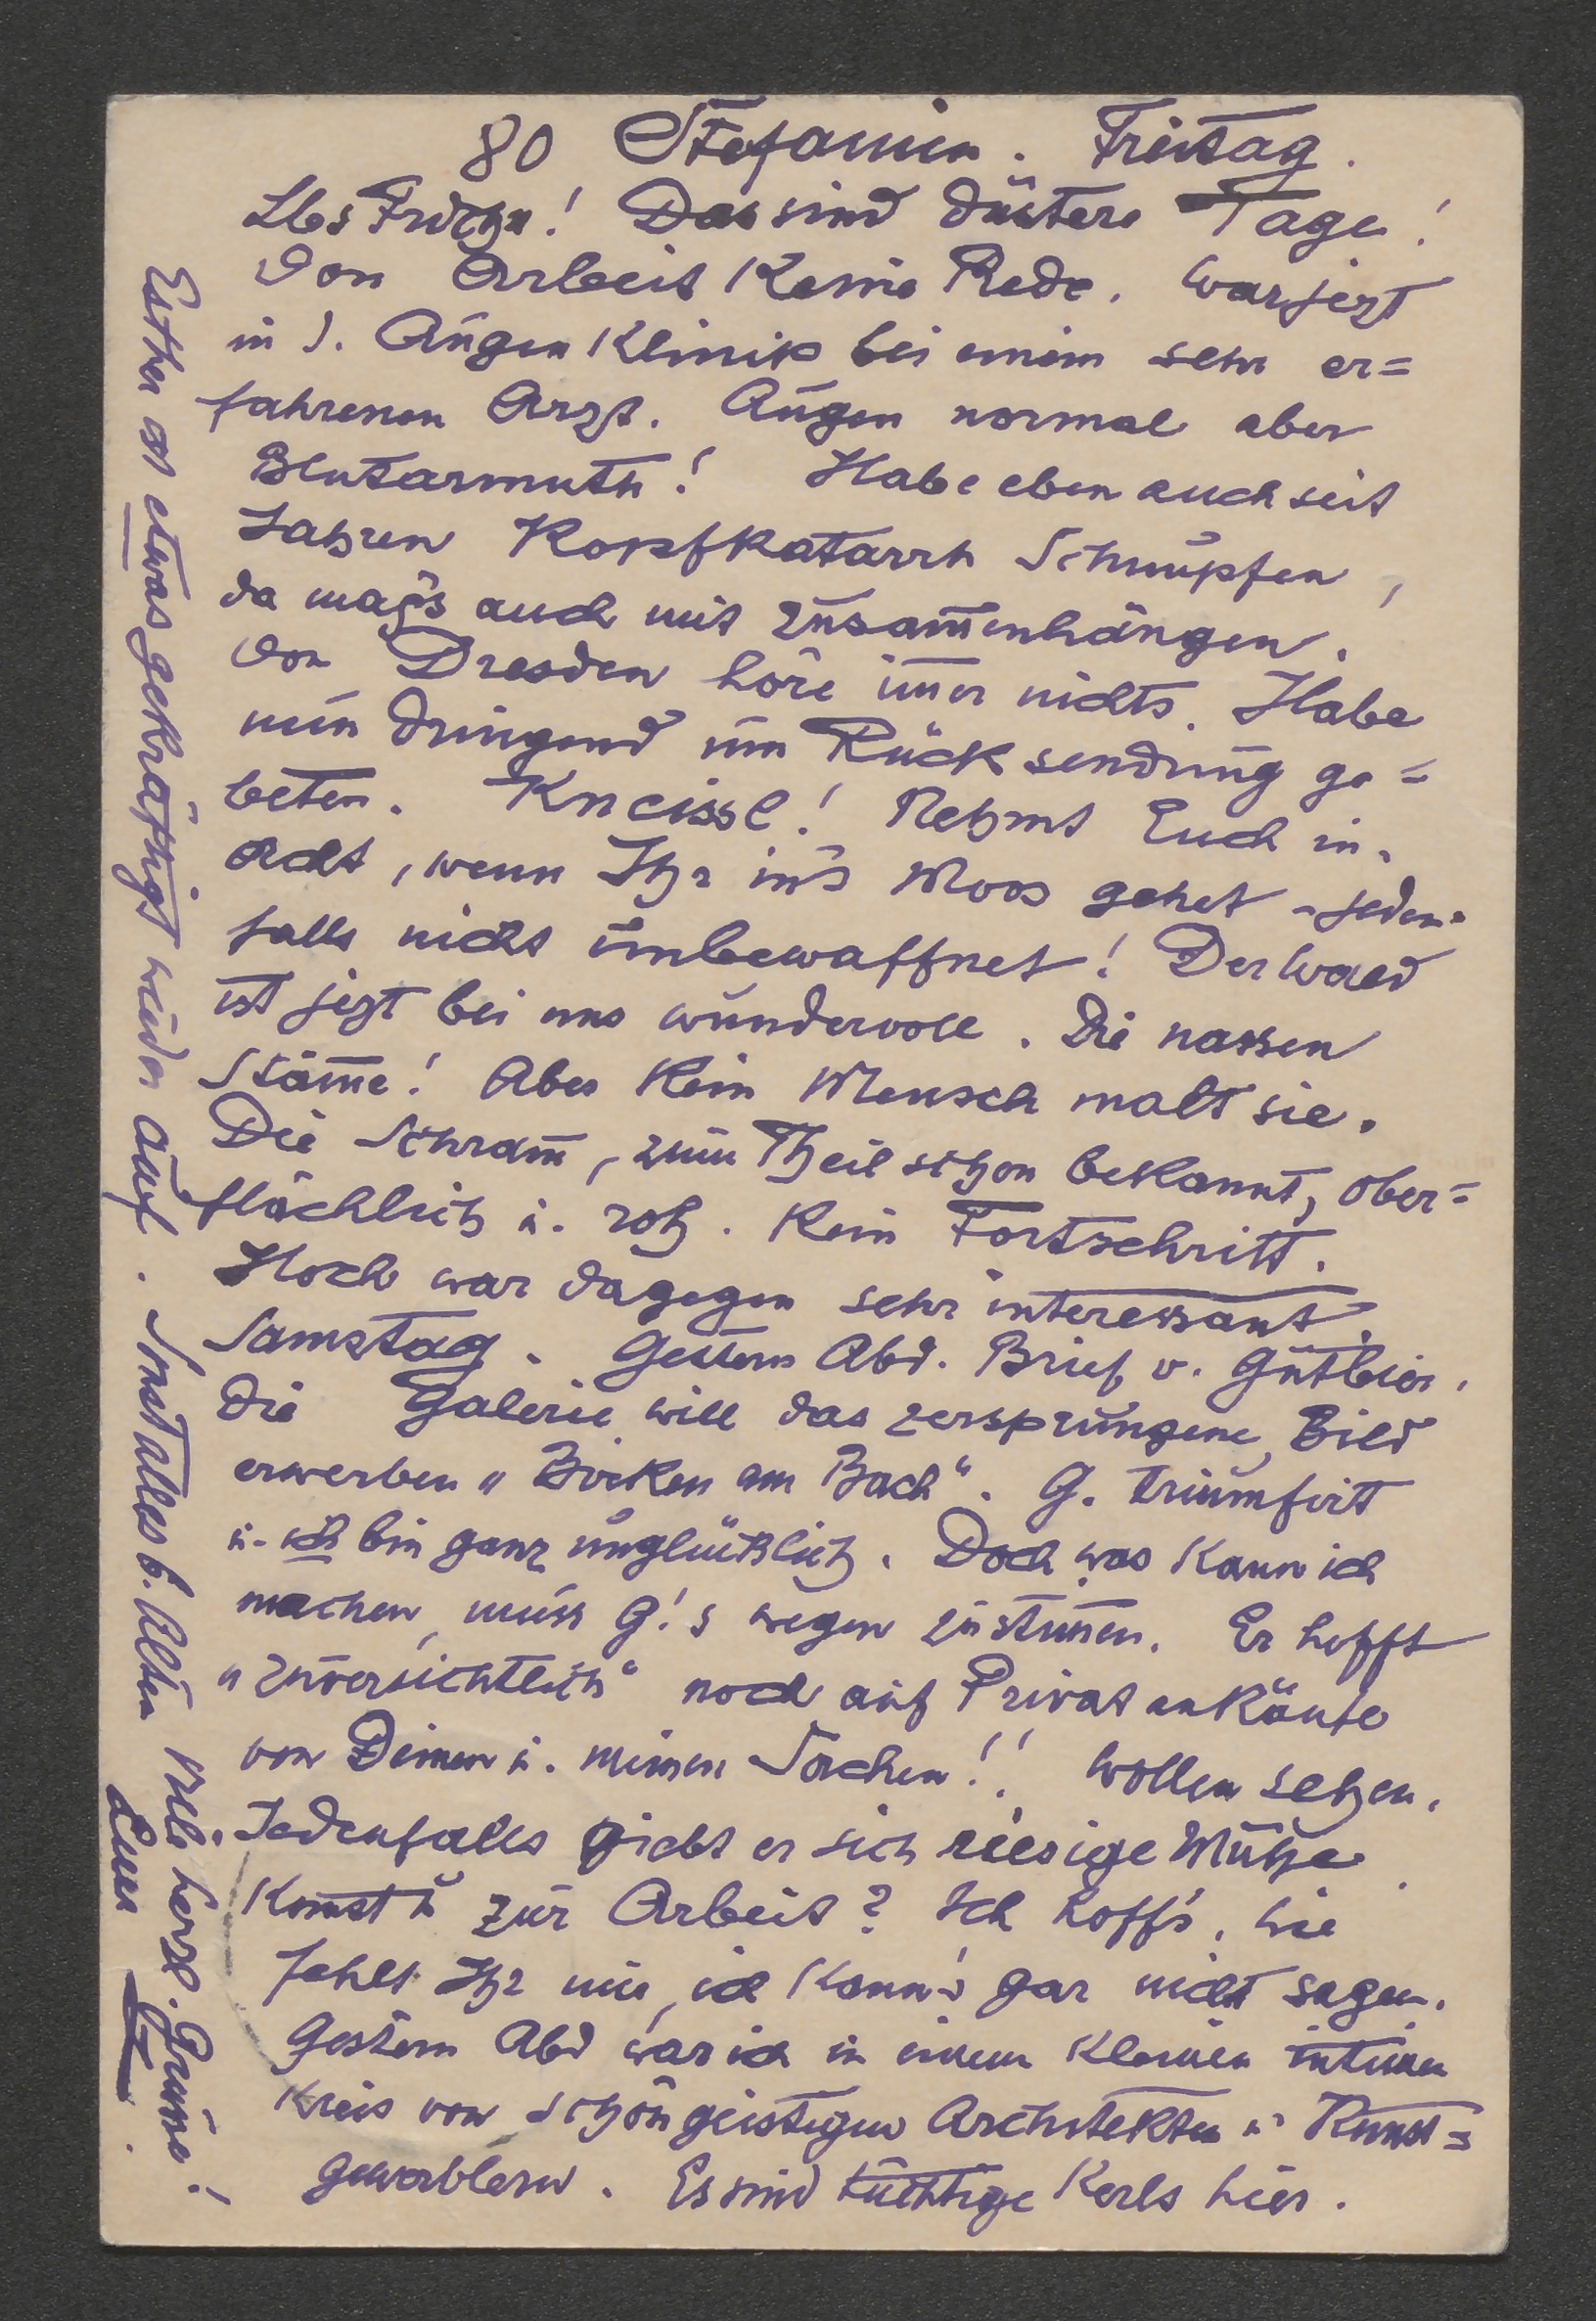 80 Stefanien. Freitag.
Lbs Fritzn! Das sind düstere Tage!
Von Arbeit keine Rede. War jezt
in d. Augenklinik bei einem sehr er=
fahrenen Arzt. Augen normal aber
Blutarmuth! Habe eben auch seit
Jahren Kopfkatarrh Schnupfen,
da mag's auch mit zusam̅enhängen.
Von Dresden höre im̅er nichts. Habe
nun dringend um Rücksendung ge=
beten. Kneissl! Nehmt Euch in
Acht, wenn Ihr in's Moos gehet - jeden=
falls nicht unbewaffnet! Der Wald
ist jezt bei uns wundervoll. Die nassen
Stäm̅e! Aber kein Mensch malt sie.
Die Schram̅, zum Theil schon bekannt, ober=
flächlich u. roh. Kein Fortschritt.
Hoch war dagegen sehr interessant.
Samstag. Gestern Abd. Brief v. Gutbier.
Die Galerie will das zersprungene Bild
erwerben „Birken am Bach“. G. triumfirt
u. ich bin ganz unglücklich. Doch was kann ich
machen, muss G!s wegen zustim̅en. Er hofft
„zuversichtlich“ noch auf Privatankäufe
von Deinen u. meinen Sachen!! Wollen sehen.
Jedenfalls giebt er sich riesige Mühe.
Kom̅st zur Arbeit? Ich hoff's. Wie
fehlt Ihr mir, ich kann's gar nicht sagen.
Gestern Abd war ich in einem kleinen intimen
Kreis von schöngeistigen Architekten u. Kunst=
gewerblern. Es sind tüchtige Kerls hier.
Esther ist etwas gekräftigt wieder auf. Sonst alles b. Alten
Viele herzl. Grüsse!
Euer